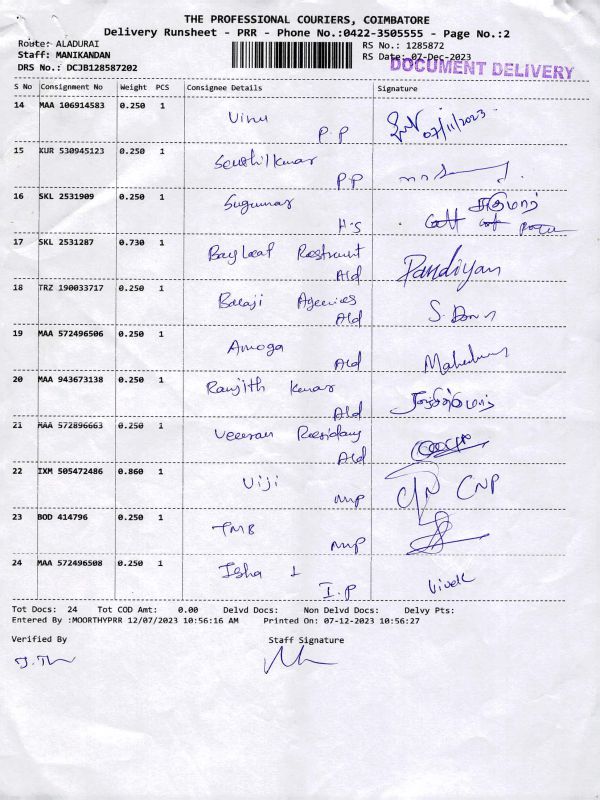 THE PROFESSIONAL COURIERS, COIMBATORE
Delivery Runsheet - PRR - Phone No.:0422-3505555 - Page No.:2
Route: ALADURAI RS No.: 1285872
Staff: MANIKANDAN RS Date: 07-Dec-2023
DOCUMENT DELIVERY
DRS No.: DCJB128587202
S No Consignment No Weight PCS Consignee Details Signature
14 MAA 106914583 0.250 1 Vinu
P.P 07/11/2023
15 KUR 530945123 0.250 1 Senthilkumar
P.P
16 SKL 2531909 0.250 1 Sugumar
H.S
17 SKL 2531287 0.730 1 Bayleaf
Ald Pandiyan
18 TRZ 190033717 0.250 1 Balaji Agencies
Ald
19 MAA 572496506 0.250 1 Amoga
Ald
20 MAA 943673138 0.250 1 Ranjith Kumar
Ald
21 MAA 572896663 0.250 1
Ald
22 IXM 505472486 0.860 1 Viji
CNP
23 BOD 414796 0.250 1 TMB
24 MAA 572496508 0.250 1 Isha
I.P Vivek
Tot Docs: 24 Tot COD Amt: 0.00 Delvd Docs: Non Delvd Docs: Delvy Pts:
Entered By :MOORTHYPRR 12/07/2023 10:56:16 AM Printed On: 07-12-2023 10:56:27
Verified By Staff Signature